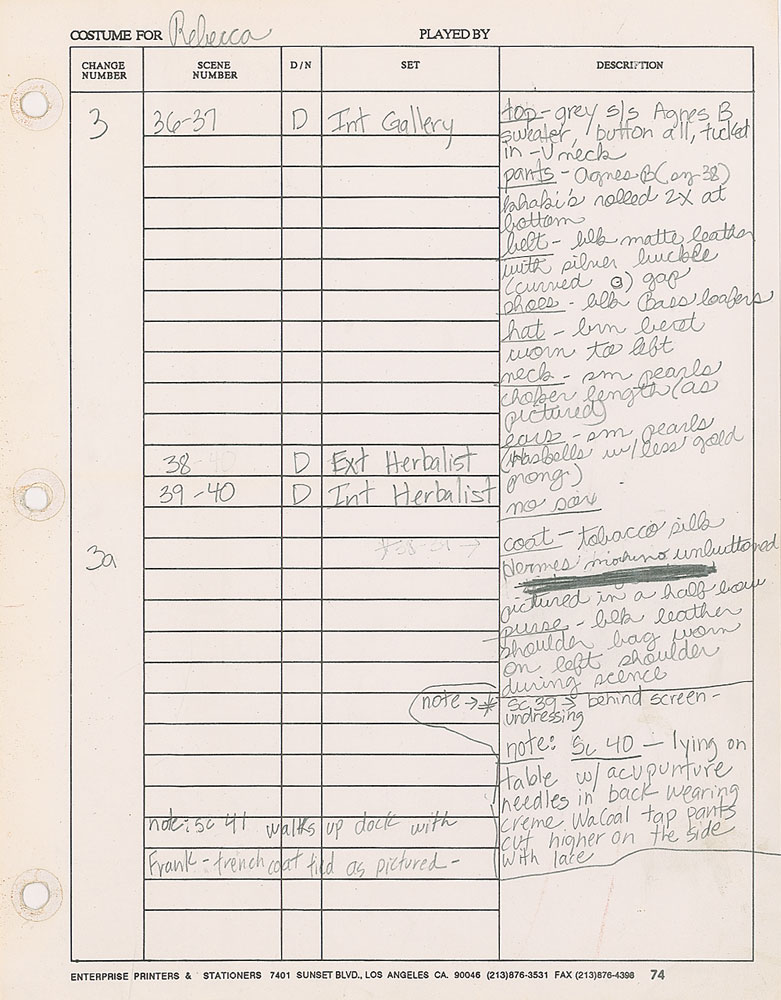 COSTUME FOR Rebecca PLAYED BY
CHANGE NUMBER SCENE NUMBER D/N SET DESCRIPTION
3 36-37 D Int Gallery
top - grey s/s Agnes B
sweater, button all, tucked
in - V neck
pants - Agnes B (sz-38)
khaki's rolled 2X at
bottom
belt - blk matte leather
with silver buckle
(curved) gap
shoes - blk Bass loafers
hat - brn beret
worn to left
neck - sm pearls
choker length (as
pictured)
ears - sm pearls
38-40 D Ext Herbalist
(Hasbells w/less gold
39-40 D Int Herbalist
prong.)
no sox
3a
coat - tobacco silk
Hermes unbuttoned
pictured in a half bow
purse - blk leather
shoulder bag worn
on left shoulder
during scence
note → * Sc 39 → behind screen -
undressing
note: Sc 40 — lying on
table w/ acupunture
needles in back wearing
creme Wacoal tap pants
cut higher on the side
with lace
note: sc 41 walks up dock with
Frank - trench coat tied as pictured -
ENTERPRISE PRINTERS & STATIONERS 7401 SUNSET BLVD., LOS ANGELES CA. 90046 (213)876-3531 FAX (213)876-4398 74